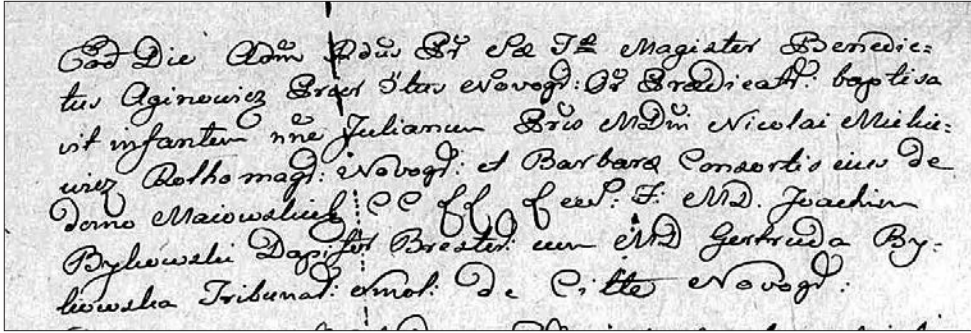 Ead Die Adm Rdus Pr Sæ Tæ Magister Benedic=
tus Aginowicz Prior Ctus Novogr: Or Prædicat: baptisa
vit infantem nne Julianum Gris MDni Nicolai Mickie=
wicz Rothomagr: Novogr: et Barbara Consortis eius de
domo Maiowskich CC LL. MD. Joachim
Bykowski Dapifer Brester: cum MD Gertruda By=
kowska Tribunal: de Citte Novogr: